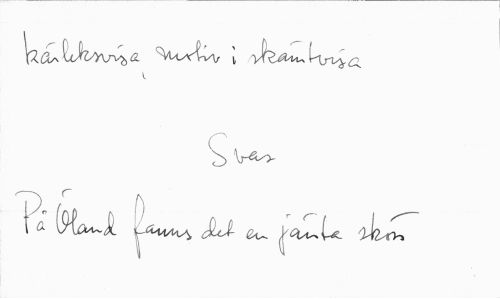 kärleksvisa, motiv i skämtvisa
Svar
På Öland fanns det en jänta skön